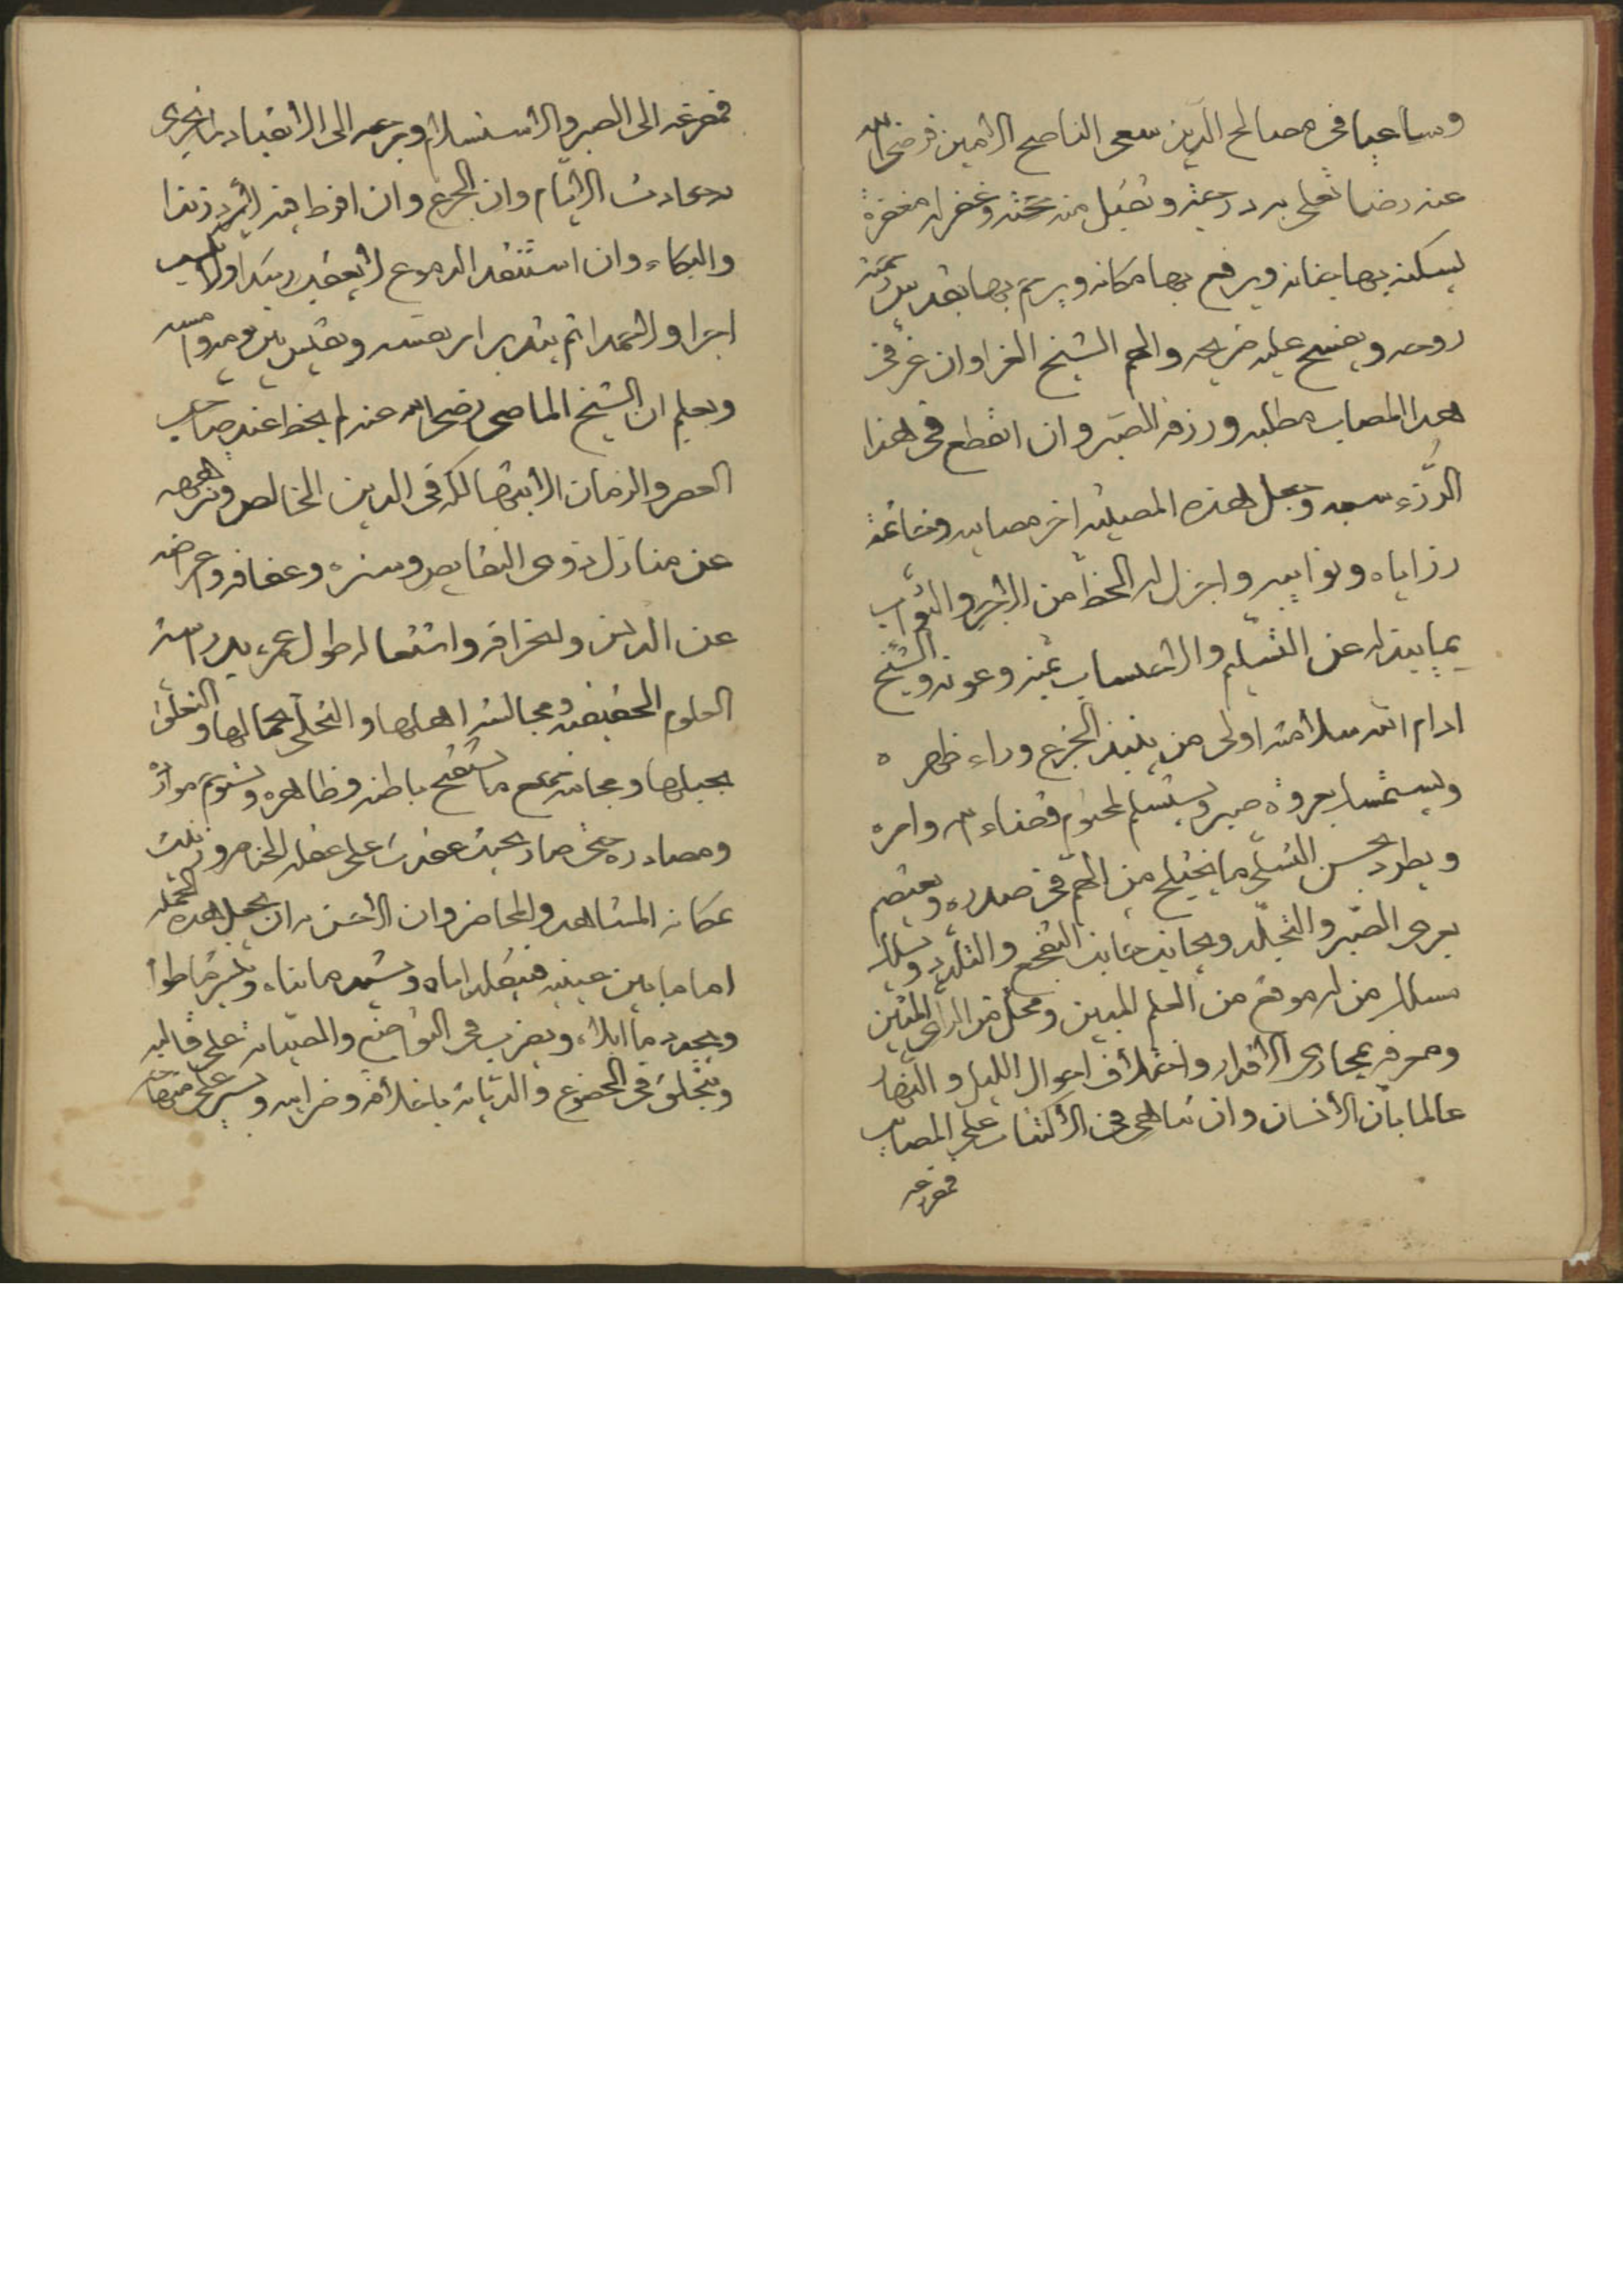 وساعيا فى مصالح الدين سعى الناصح الامين فرضى الله
عنه رضا تعلى به درجته وتقبل منه حجته وغفر له مغفرة
يسكنه بها جنانه ويرفع بها مكانه ويريم بها بقدس
روحه ويفسح عليه ضريحه والهم الشيخ العزا وان عز فى
هذا المصاب مطلبه ورزقه الصبر وان انقطع فى هذا
الرزء سببه وجعل هذه المصيبة اخر مصايبه وخاتمة
رزاياه ونوايبه واجزل له الحظ من الاجر والثواب
بما يبذله عن التسليم والاحتساب بمنه وعونه والشيخ
ادام الله سلامته اولى من ينبذ الجزع وراء ظهره
ويستمسك بعروة صبره ويستسلم لمحتوم قضاء الله وامره
ويطرد بحسن التسلى ما يختلج من الهم فى صدره ويعتصم
بعرى الصبر والتجلد ويجانب جانب التفجع والتلدد ويسلك
مسلك من له موقع من العلم المبين ومحل من الراى المتين
ومعرفة بمجارى الاقدار واختلاف احوال الليل والنهار
عالما بان الانسان وان تناهى فى الاكتئاب على المصاب
فمفزعه
فمفزعه الى الصبر والاستسلام ومرجعه الى الانقياد لما يجرى
به حادث الايام وان الجزع وان افرط فيه لم يرد زندا
والبكاء وان استنفد الدموع لا يعقب رشدا ولا يكسب
اجرا ولا حمدا ثم يتدبر امر نفسه ويقيس بين يومه وامسه
ويعلم ان الشيخ الماضى رضى الله عنه لم يحظ عند صاحب
العصر والزمان الا بتهالكه فى الدين الخالص ونزاهته
عن منازل ذوى النقايص وستره وعفافه واعراضه
عن الدين وانحرافه واشتغاله طول عمره بدراسة
العلوم الحقيقية ومجالسة اهلها والتحلى بجمالها والتعلق
بحبلها ومجانبة جميع ما يستقبح باطنه وظاهره ويستوخم موارده
ومصادره حتى صار بحيث عقدت على فضله الخناصر وزينت
بمكانه المشاهد والمحاضر وان الاحسن به ان يجعل هذه الجملة
اماما بين عينيه فيتقلد اياه ويشيد ما بناه وينشر ما طواه
ويجدد ما ابلاه ويضرب فى التواضع والصيانة على قالبه
ويتخلق فى الخضوع والديانة باخلاقه وضرايبه ويسير على منهاجه